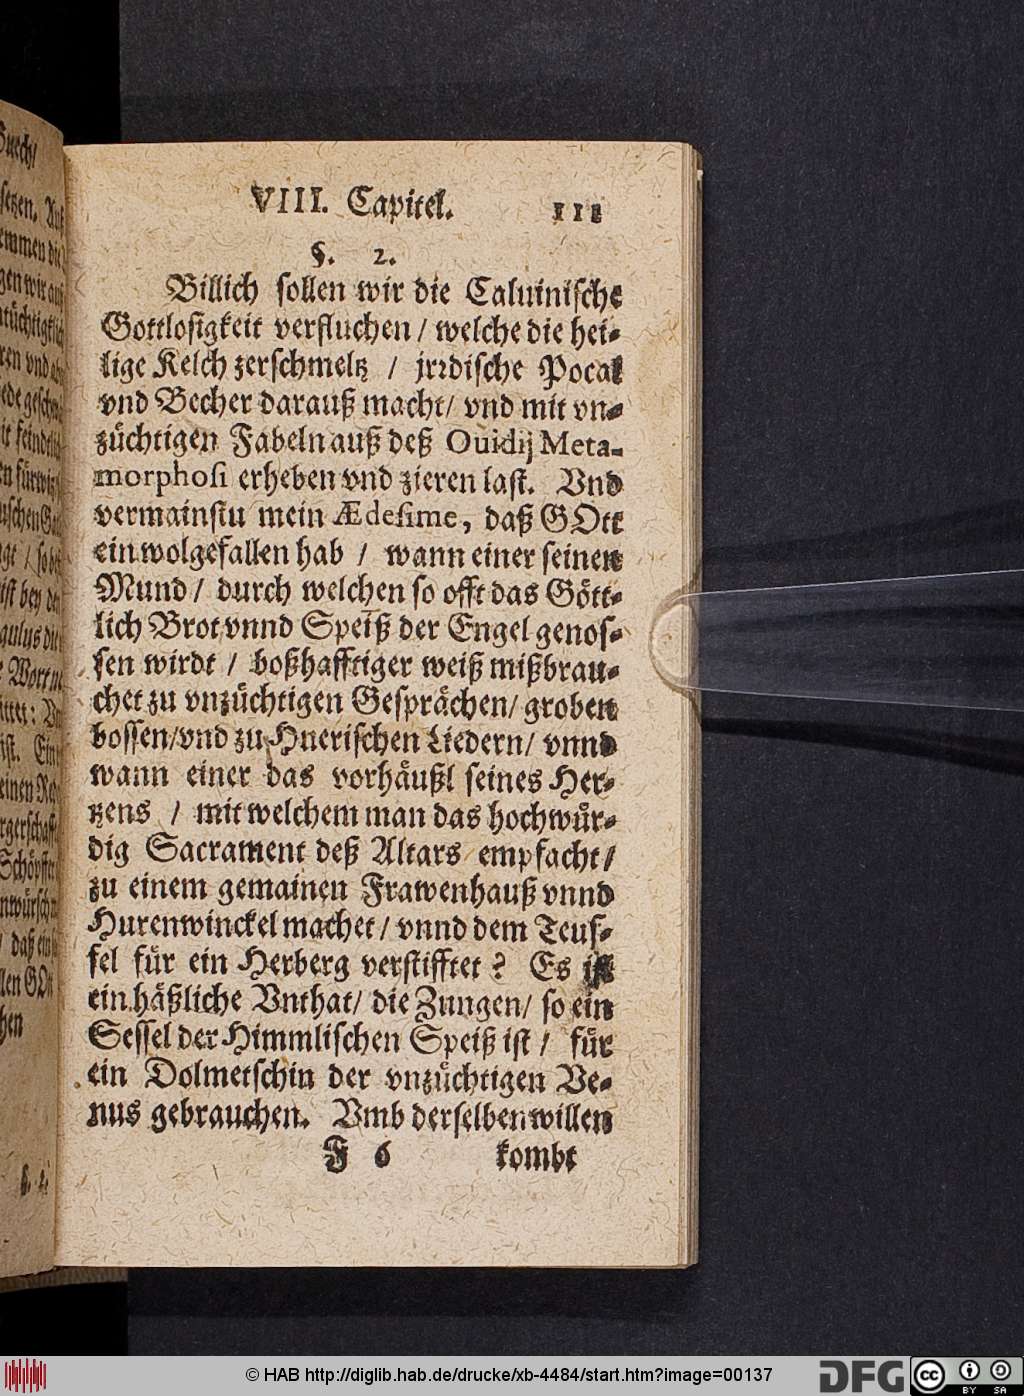 VIII. Capitel. 111
§. 2.
Billich sollen wir die Caluinische
Gottlosigkeit verfluchen / welche die hei-
lige Kelch zerschmeltz / jrꝛdische Pocal
vnd Becher darauß macht / vnd mit vn-
züchtigen Fabeln auß deß Ouidij Meta-
morphosi erheben vnd zieren last. Vnd
vermainstu mein Ædesime, daß GOtt
ein wolgefallen hab / wann einer seinen
Mund / durch welchen so offt das Gött-
lich Brot vnnd Speiß der Engel genos-
sen wirdt / boßhafftiger weiß mißbrau-
chet zu vnzüchtigen Gesprächen / groben
bossen / vnd zu Huerischen Liedern / vnnd
wann einer das vorhäußl seines Her-
tzens / mit welchem man das hochwür-
dig Sacrament deß Altars empfacht /
zu einem gemainen Frawenhauß vnnd
Hurenwinckel machet / vnnd dem Teuf-
fel für ein Herberg verstifftet ? Es ist
ein häßliche Vnthat / die Zungen / so ein
Sessel der Himmlischen Speiß ist / für
ein Dolmetschin der vnzüchtigen Ve-
nus gebrauchen. Vmb derselben willen
F 6 kombt
© HAB http://diglib.hab.de/drucke/xb-4484/start.htm?image=00137
DFG
cc BY SA